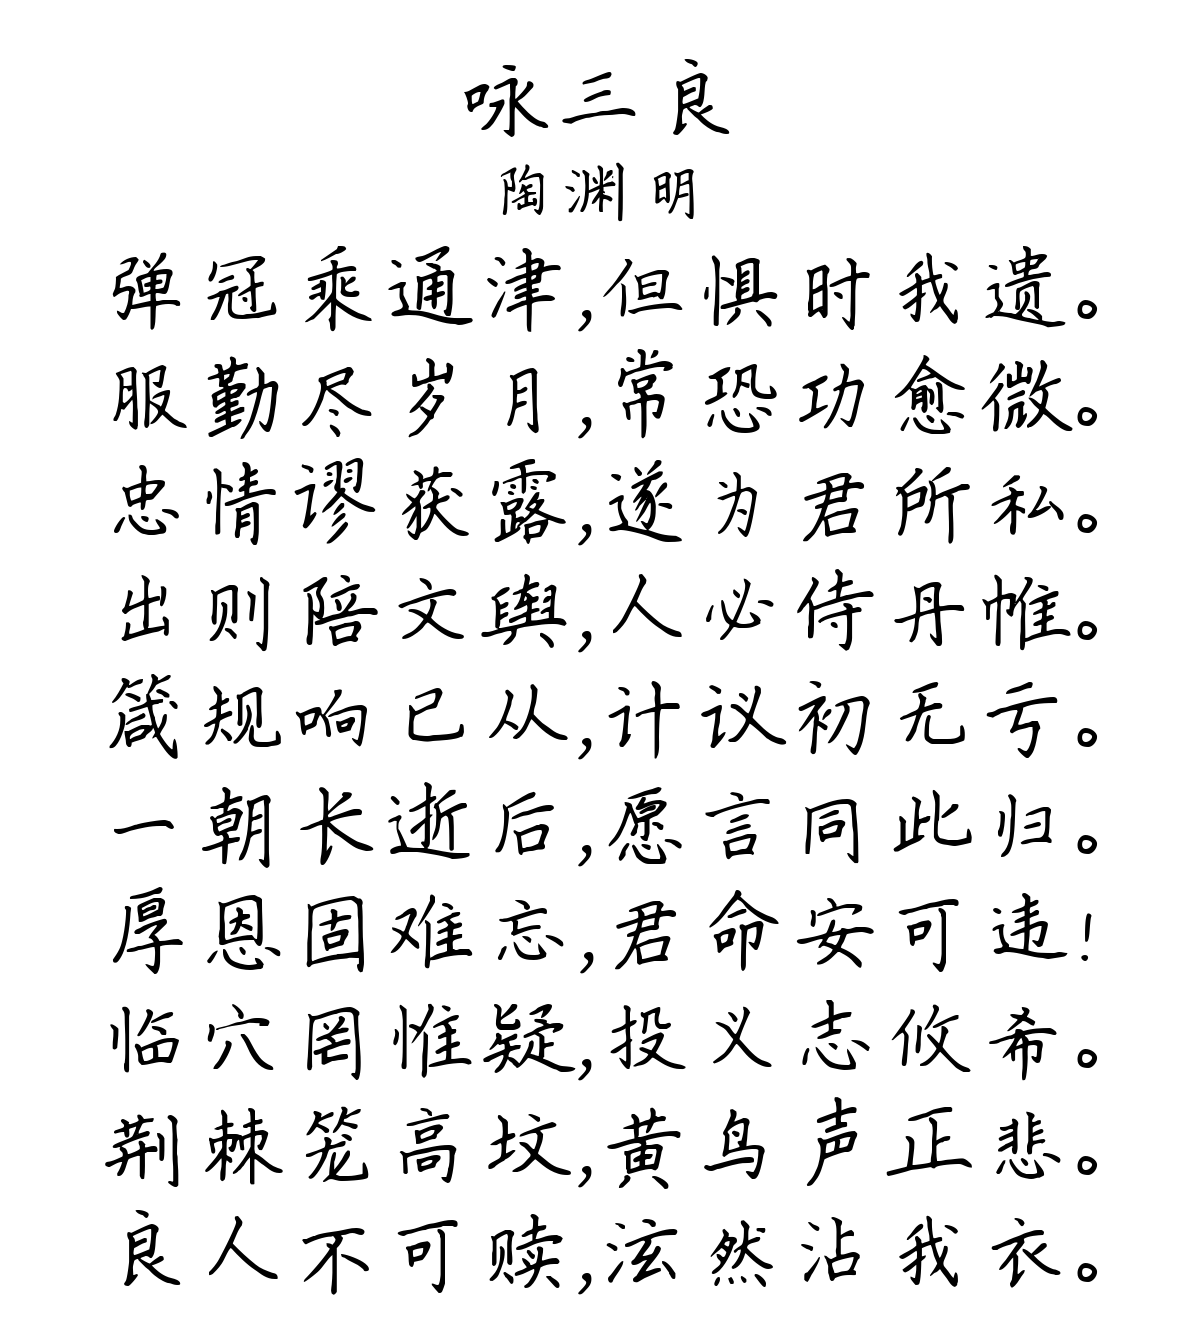 咏三良
陶渊明
弹冠乘通津,但惧时我遗。
服勤尽岁月,常恐功愈微。
忠情谬获露,遂为君所私。
出则陪文舆,人必侍丹帷。
箴规响已从,计议初无亏。
一朝长逝后,愿言同此归。
厚恩固难忘,君命安可违!
临穴罔惟疑,投义志攸希。
荆棘笼高坟,黄鸟声正悲。
良人不可赎,泫然沾我衣。